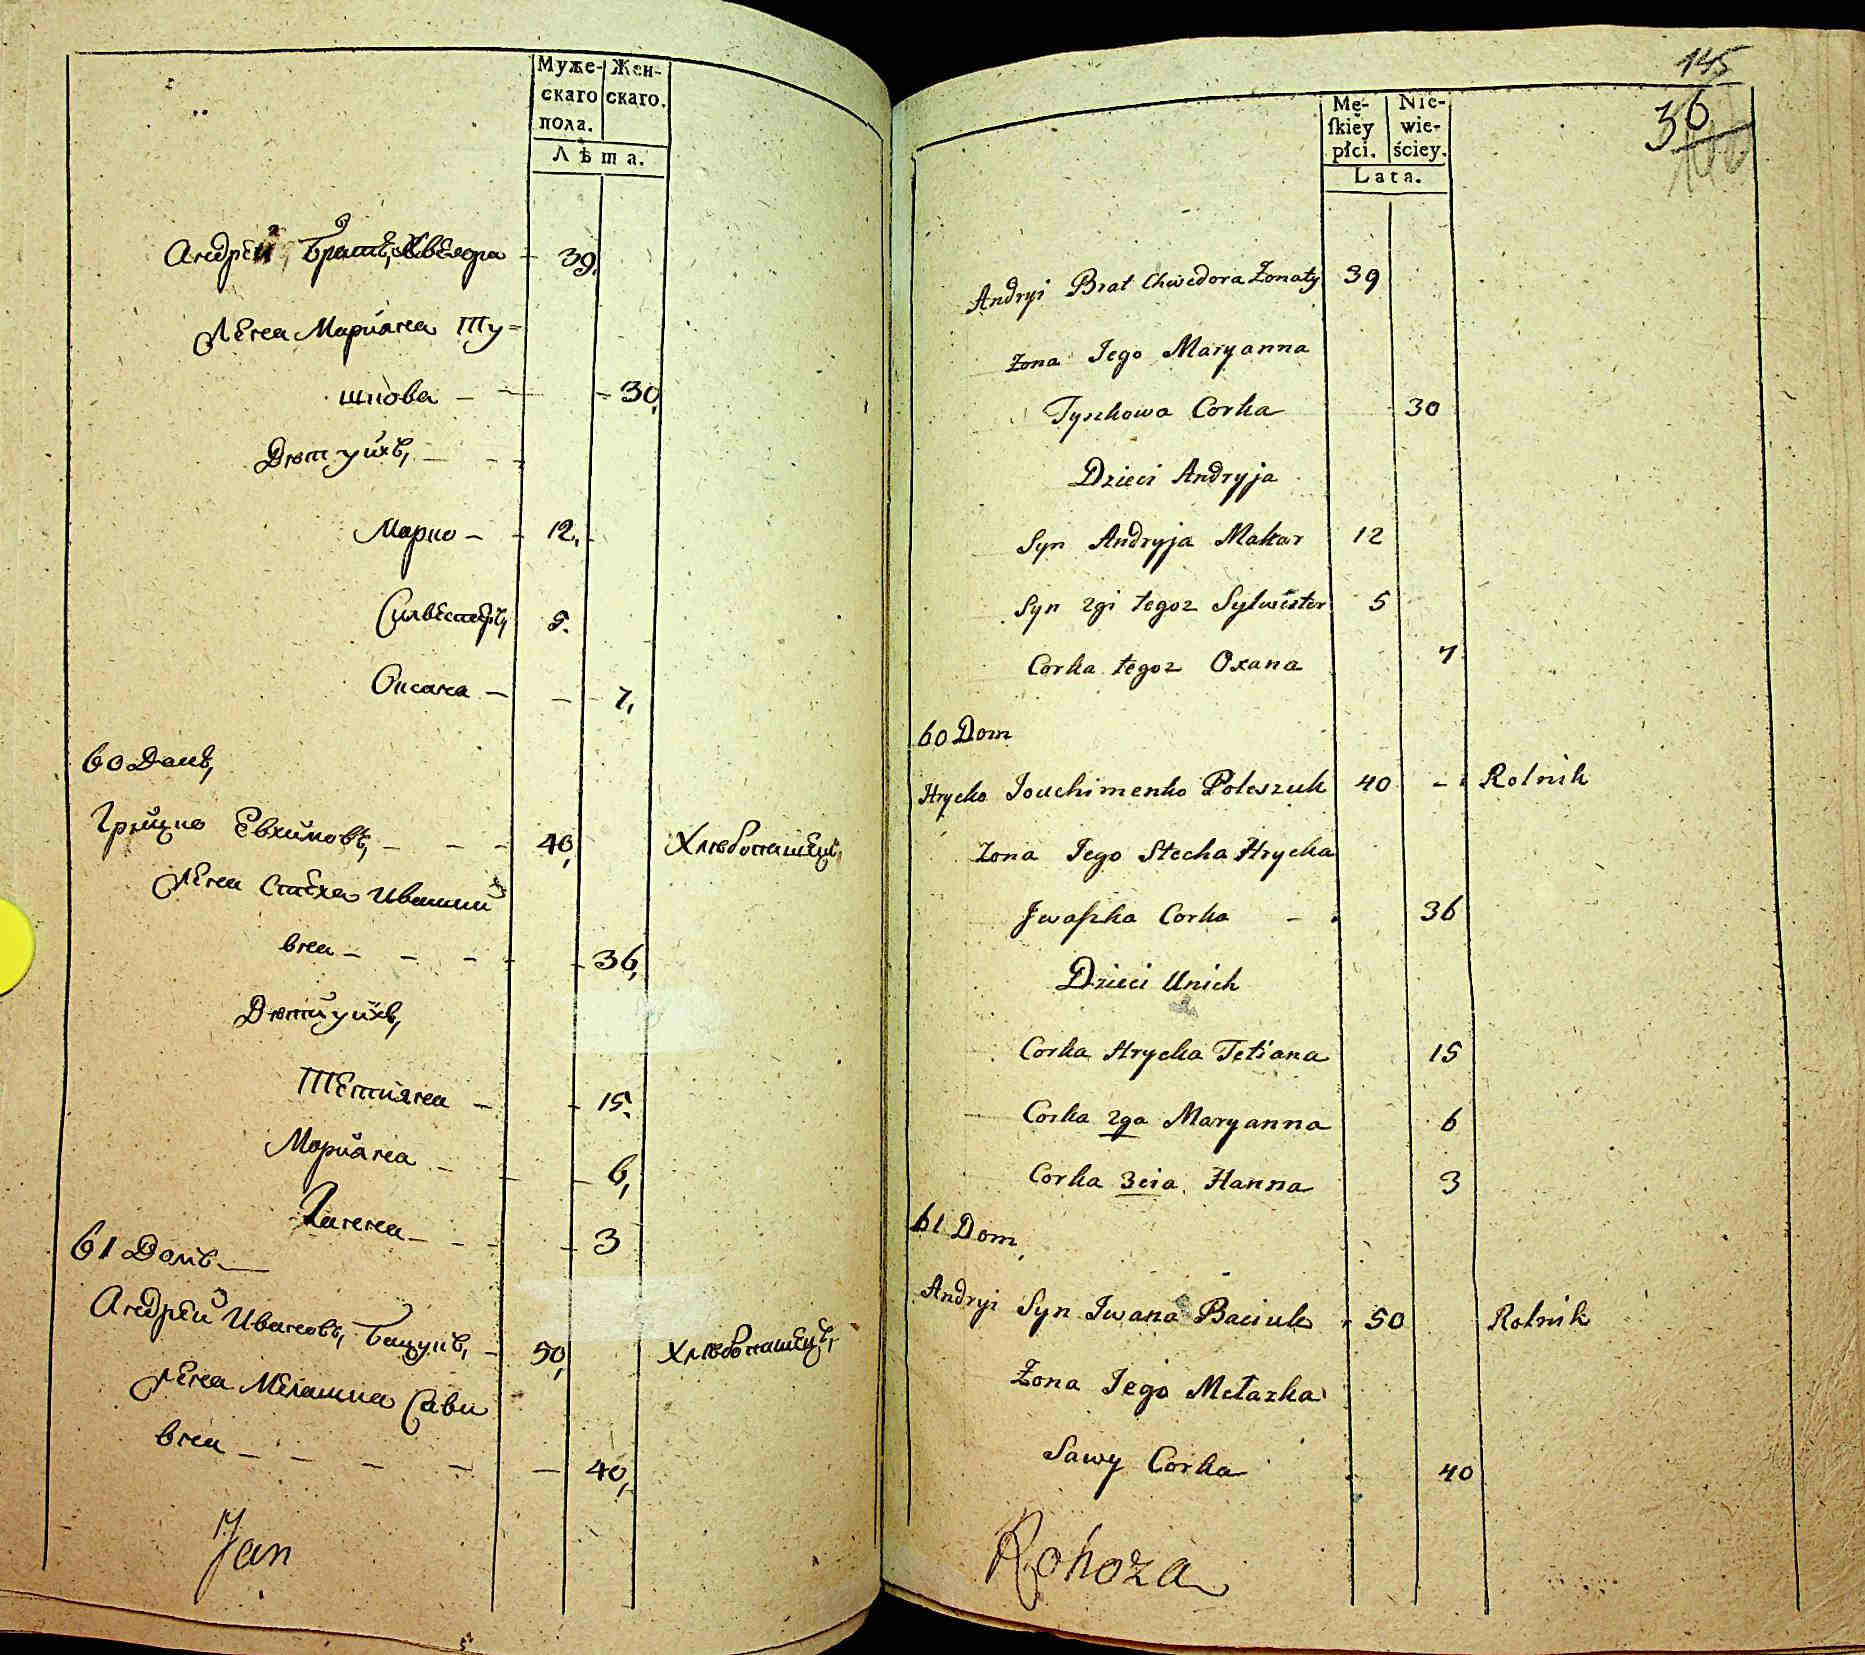 Муже- Жен-
скаго скаго.
пола.
Лѣта.
Андрей Братъ Хведора 39.
Жена Марияна Ту-
шкова 30,
Дѣти ихъ,
Марко 12.
Силвестеръ, 5.
Оксана 7,
60 Домъ,
Грицко Евхимовъ, 40, Хлѣбопашецъ,
Жена Стеха Ивашки
вна 36,
Дѣти ихъ,
Тетияна 15.
Марияна 6,
Ганна 3
61 Домъ
Андрей Ивановъ, Бацукъ, 50, Хлѣбопашецъ,
Жена Мелашка Сави
вна 40,
Jan
145
36
Mę- Nie-
ſkiey wie-
płci. ściey.
Lata.
Andryi Brat Chwedora Żonaty 39
Żona Jego Maryanna
Tyszkowa Corka 30
Dzieci Andryja
Syn Andryja Makar 12
Syn 2gi tegoz Sylwester 5
Corka tegoz Oxana 7
60 Dom
Hrycko Jouchimenko Poleszuk 40 - Rolnik
Zona Jego Stecha Hrycka
Jwaſzka Corka - 36
Dzieci Unich
Corka Hrycka Tetiana 15
Corka 2ga Maryanna 6
Corka 3cia Hanna 3
61 Dom
Andryi Syn Jwana Baciuk 50 Rolnik
Żona Jego Mełazka
Sawy Corka 40
Rohoza